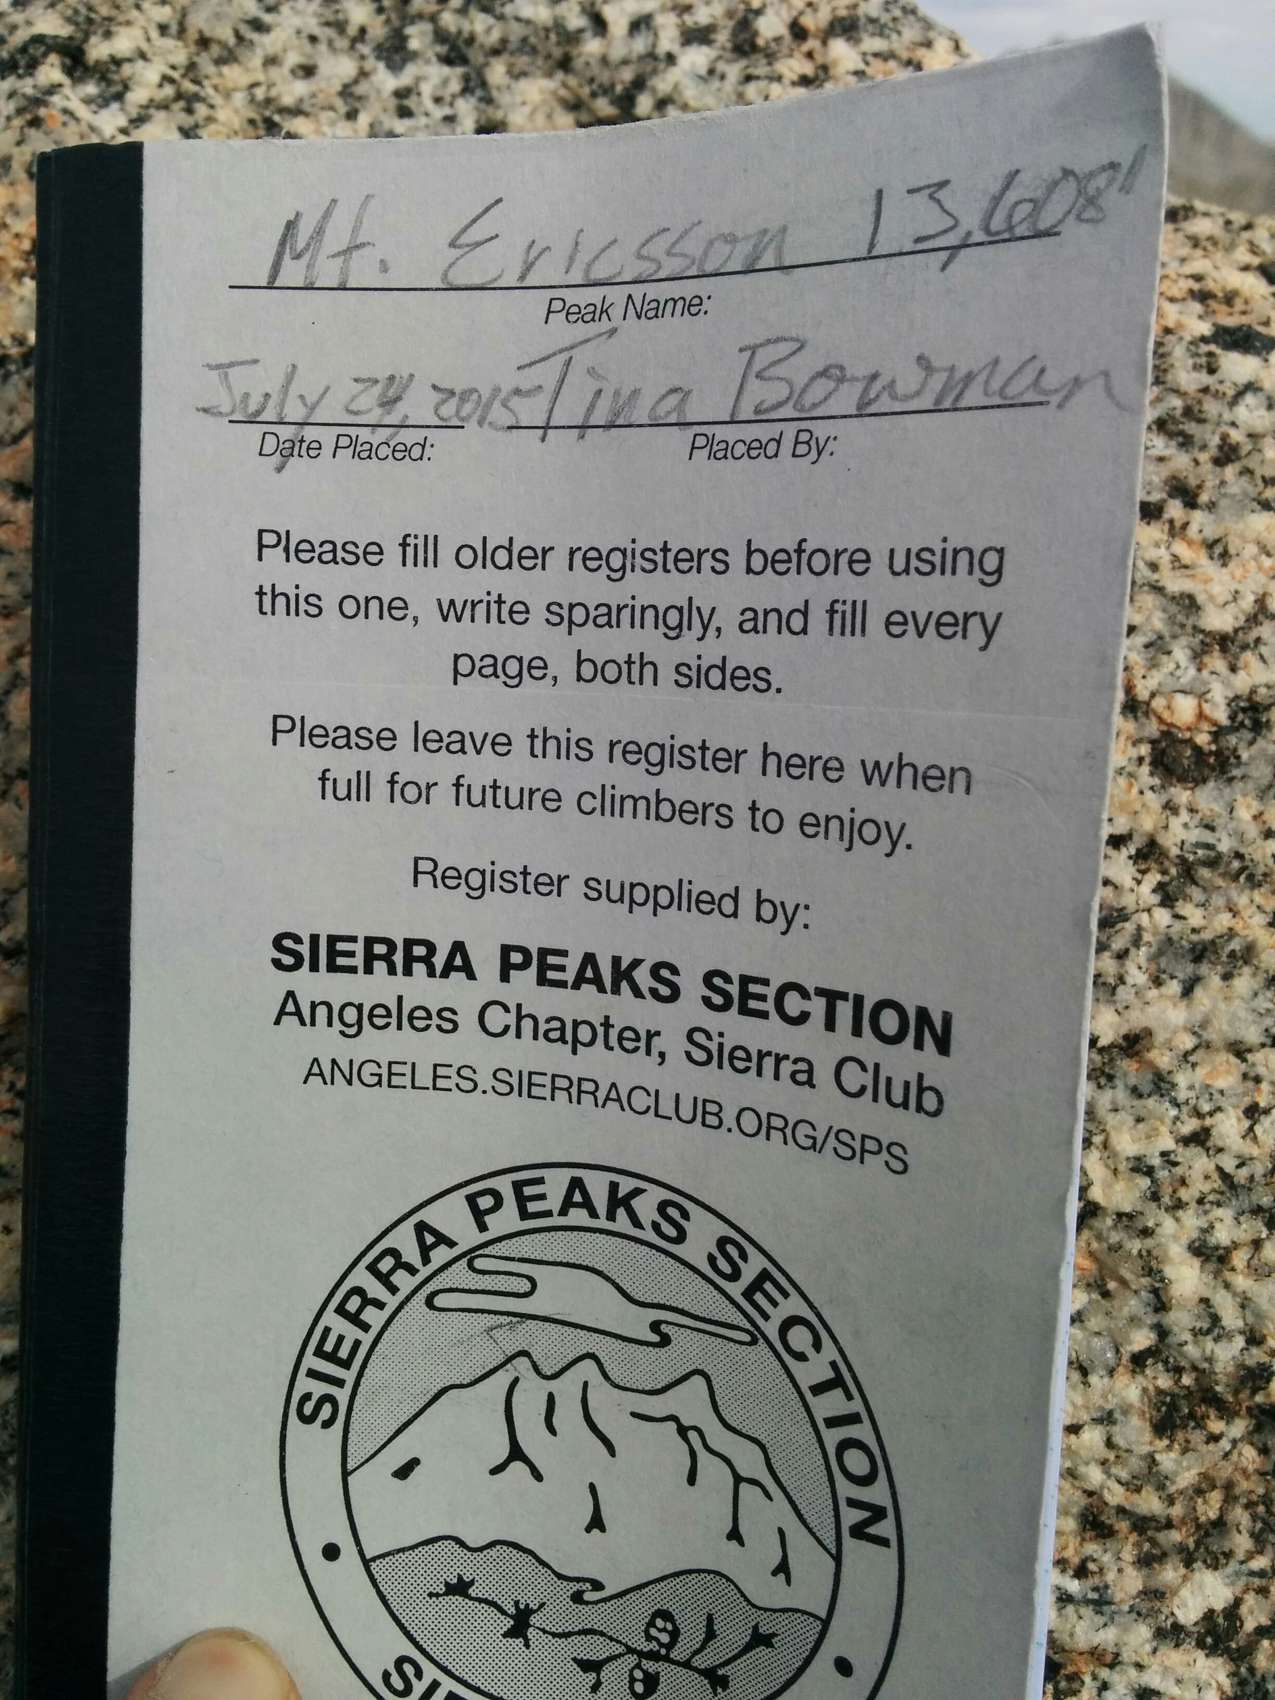 Mt. Ericsson 13,608'
Peak Name:
July 24, 2015 Tina Bowman
Date Placed: Placed By:
Please fill older registers before using
this one, write sparingly, and fill every
page, both sides.
Please leave this register here when
full for future climbers to enjoy.
Register supplied by:
SIERRA PEAKS SECTION
Angeles Chapter, Sierra Club
ANGELES.SIERRACLUB.ORG/SPS
SIERRA PEAKS SECTION